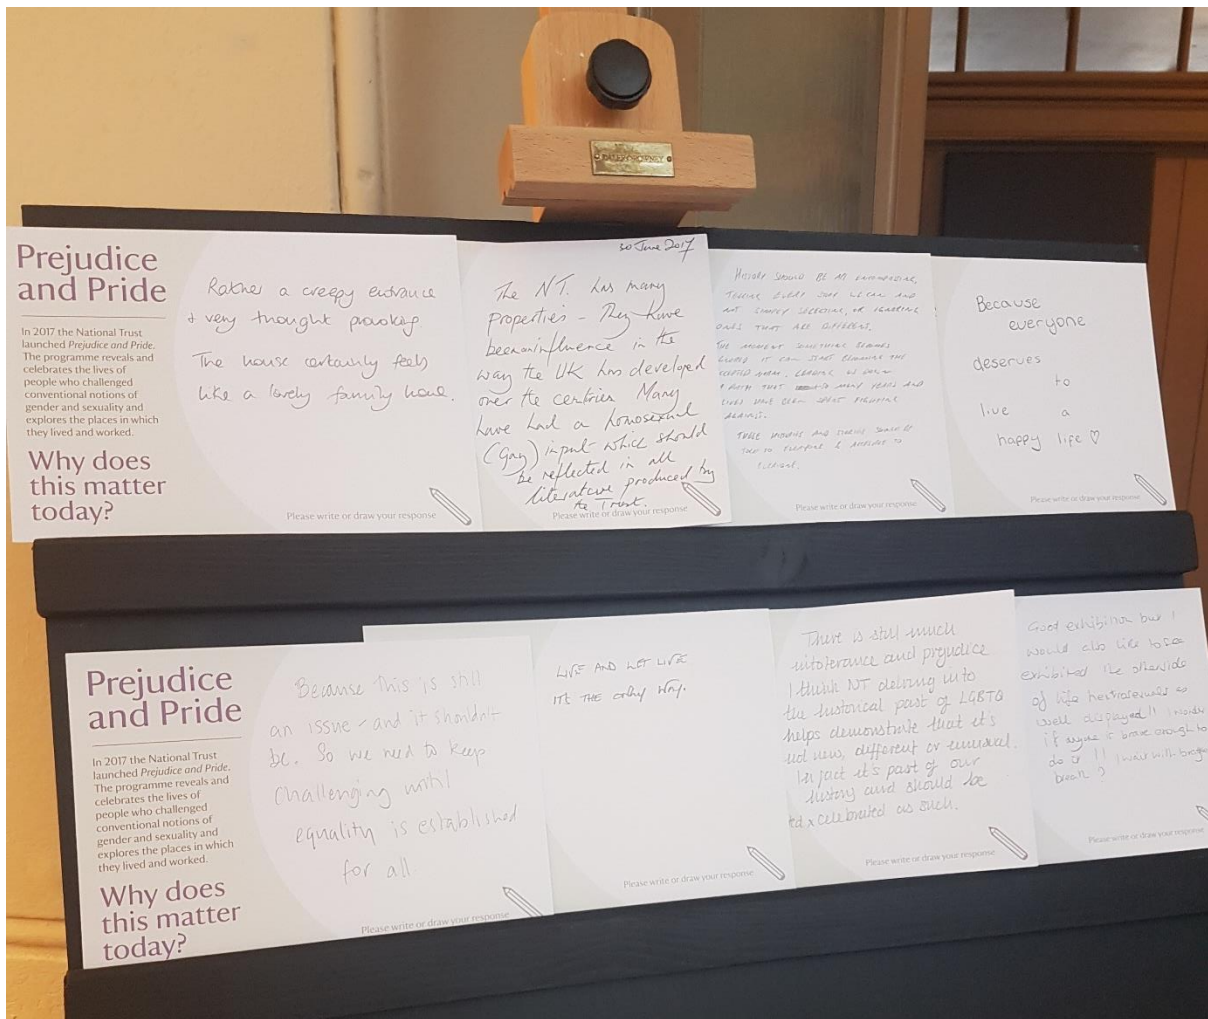 Prejudice
and Pride
In 2017 the National Trust
launched Prejudice and Pride.
The programme reveals and
celebrates the lives of
people who challenged
conventional notions of
gender and sexuality and
explores the places in which
they lived and worked.
Why does
this matter
today?
Rather a creepy entrance
& very thought provoking.
The house certainly feels
like a lovely family home.
Please write or draw your response
30 June 2017
The N.T. has many
properties – They have
been an influence in the
way the UK has developed
over the centuries Many
have had a homosexual
(gay) input which should
be reflected in all
literature produced by
the Trust.
Please write or draw your response
HISTORY SHOULD BE ALL ENCOMPASSING,
TELLING EVERY STORY WE CAN AND
NOT SIMPLY SELECTING, OR IGNORING
ONES THAT ARE DIFFERENT.
THE MOMENT SOMETHING BECOMES
IT CAN START BECOMING THE
THAT MANY YEARS AND
LIVES HAVE BEEN SPENT FIGHTING
AGAINST.
THESE HISTORIES AND STORIES SHOULD BE
TOLD TO EVERYONE &
Please write or draw your response
Because
everyone
deserves
to
live a
happy life ♡
Please write or draw your response
Prejudice
and Pride
In 2017 the National Trust
launched Prejudice and Pride.
The programme reveals and
celebrates the lives of
people who challenged
conventional notions of
gender and sexuality and
explores the places in which
they lived and worked.
Why does
this matter
today?
Because this is still
an issue – and it shouldn't
be. So we need to keep
challenging until
equality is established
for all
Please write or draw your response
LIVE AND LET LIVE
IT'S THE ONLY WAY.
Please write or draw your response
There is still much
intolerance and prejudice
I think NT delving into
the historical past of LGBTQ
helps demonstrate that it's
not new, different or unusual.
In fact it's part of our
history and should be
celebrated as such.
Please write or draw your response
Good exhibition but I
would also like to see
exhibited the otherside
of life hetrosexuals as
well displayed!! I wonder
if anyone is brave enough to
do it!! I wait with
breath
Please write or draw your response